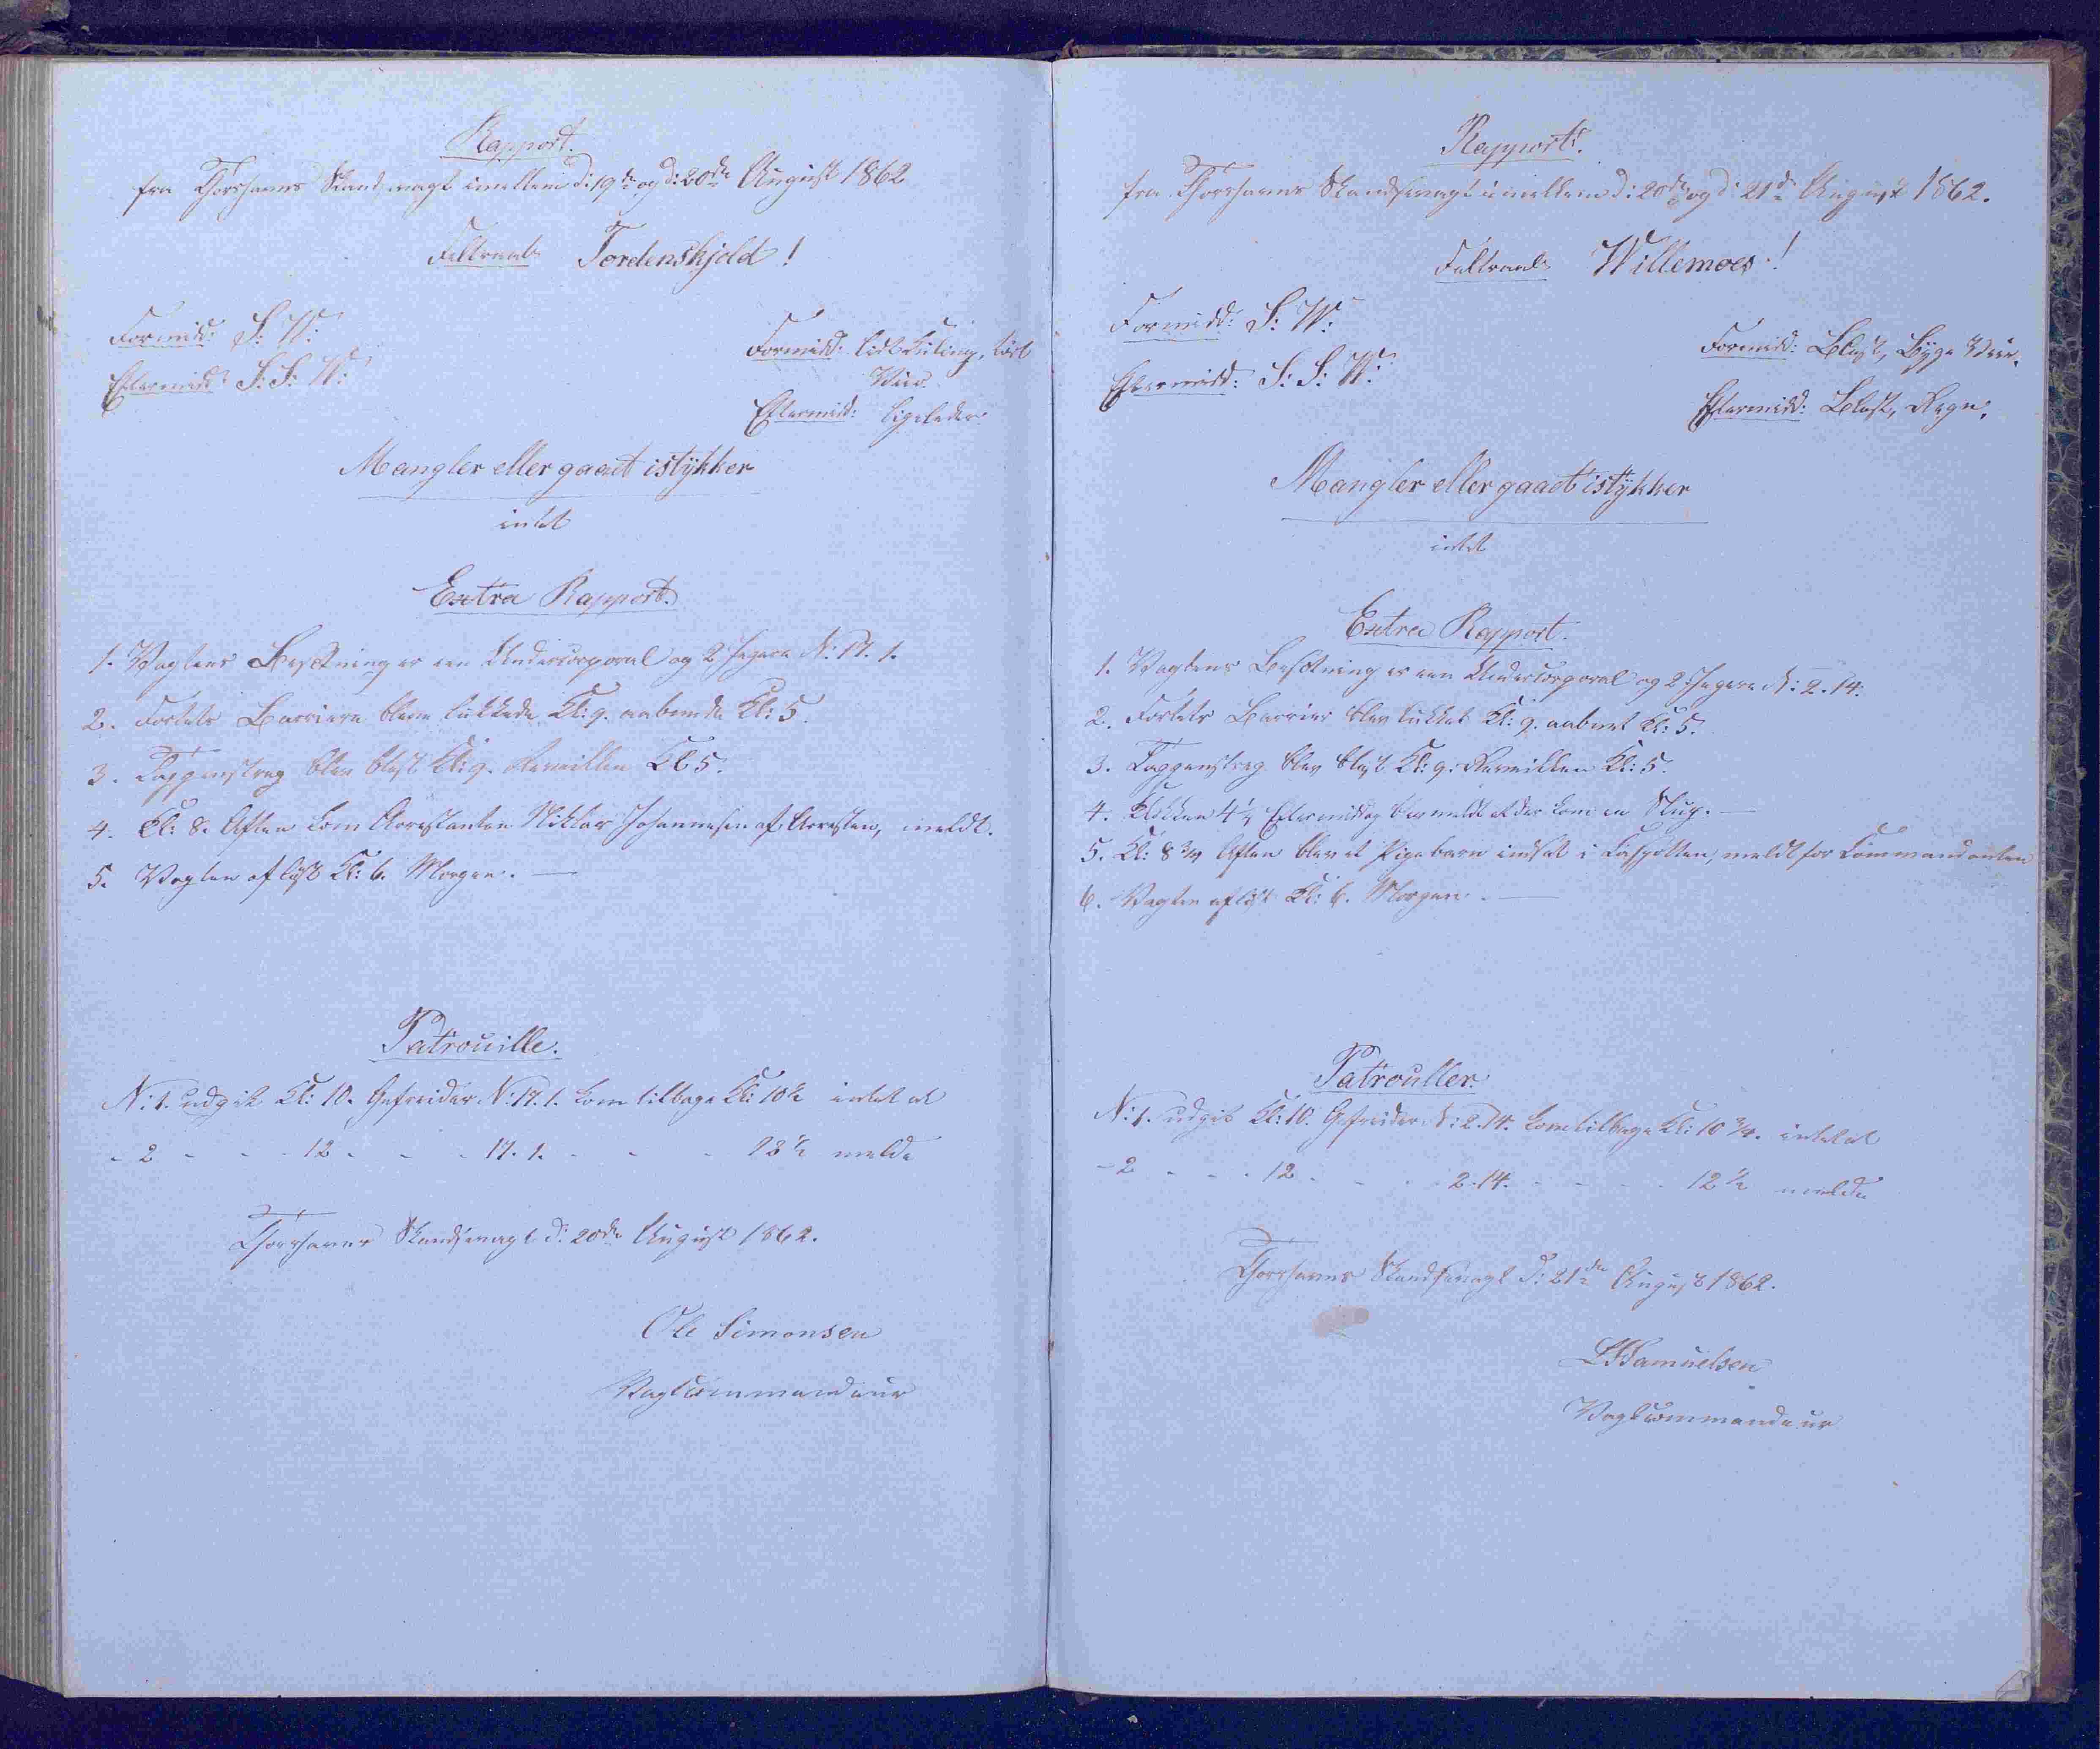 Rapport.
fra Thorshavns Skandsevagt imellem d: 19de og d: 20de August 1862
Feltraab Tordenskjold!
Formid: S: W:
Eftermidd: S: S: W:
Formidd: lidt Kuling, tørt
Veir
Eftermid: ligeledes
Mangler eller gaaet istÿkker
intet
Extra Rapport.
1. Vagtens Besætning er een Undercorporal og 2 Jægere N: 17. 1.
2. Fortets Barriere bleve lukkede Kl: 9. aabnede Kl: 5.
3. Tappenstreg blev blæst Kl: 9. Reveillen Kl 5.
4. Kl: 8. Aften kom Arrestanten Niklas Johannesen af Arresten, meldt.
5. Vagten afløst Kl: 6. Morgen. —
Patrouille.
N: 1. udgik Kl: 10. Gefreider N: 17. 1. kom tilbage Kl: 10½ intet at
- 2 - - - 12 - - - 17. 1. - - - 12½ melde
Thorshavns Skandsevagt d: 20de August 1862.
Ole Simonsen
Vagtcommandeur
Rapport.
fra Thorshavns Skandsevagt imellem d: 20de og d: 21de August 1862.
Feltraab Willemoes!
Formidd: S: W:
Eftermidd: S: S: W:
Formidd: Blæst, Byge Veir.
Eftermidd: Blæst, Regn.
Mangler eller gaaet istÿkker
intet
Extra Rapport.
1. Vagtens Besætning er een Undercorporal og 2 Jægere N: 2. 14.
2. Fortets Barrier blev lukket Kl: 9. aabnet Kl: 5.
3. Tappenstreg blev blæst Kl: 9. Reveillen Kl: 5.
4. Klokken 4½ Eftermiddag blev meldt at der kom en Slup. —
5. Kl: 8¾ Aften blev et Pigebarn indsat i Kaspotten, meldt for Commandanten
6. Vagten afløst Kl: 6. Morgen. —
Patrouller.
N: 1. udgik Kl: 10. Gefreider N: 2. 14. kom tilbage Kl: 10¾. intet at
- 2 - - - 12 - - - 2. 14. - - - 12½ melde
Thorshavns Skandsevagt d: 21de August 1862.
Samuelsen
Vagtcommandeur